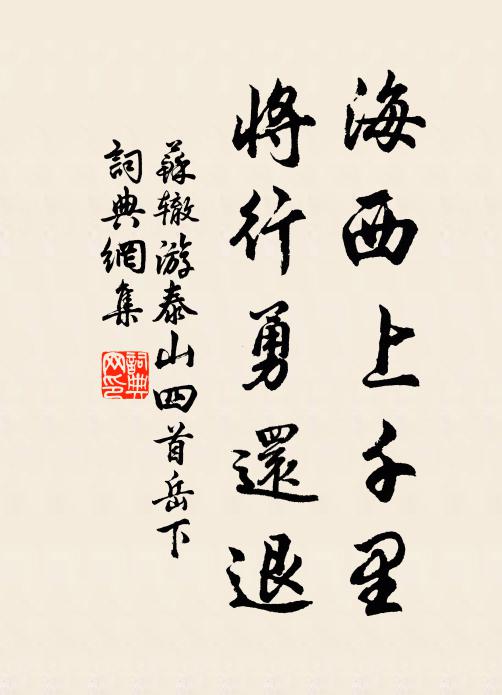 海西上千里
将行勇還退
蘇辙游泰山四首岳下
詞典網集
詞典网印